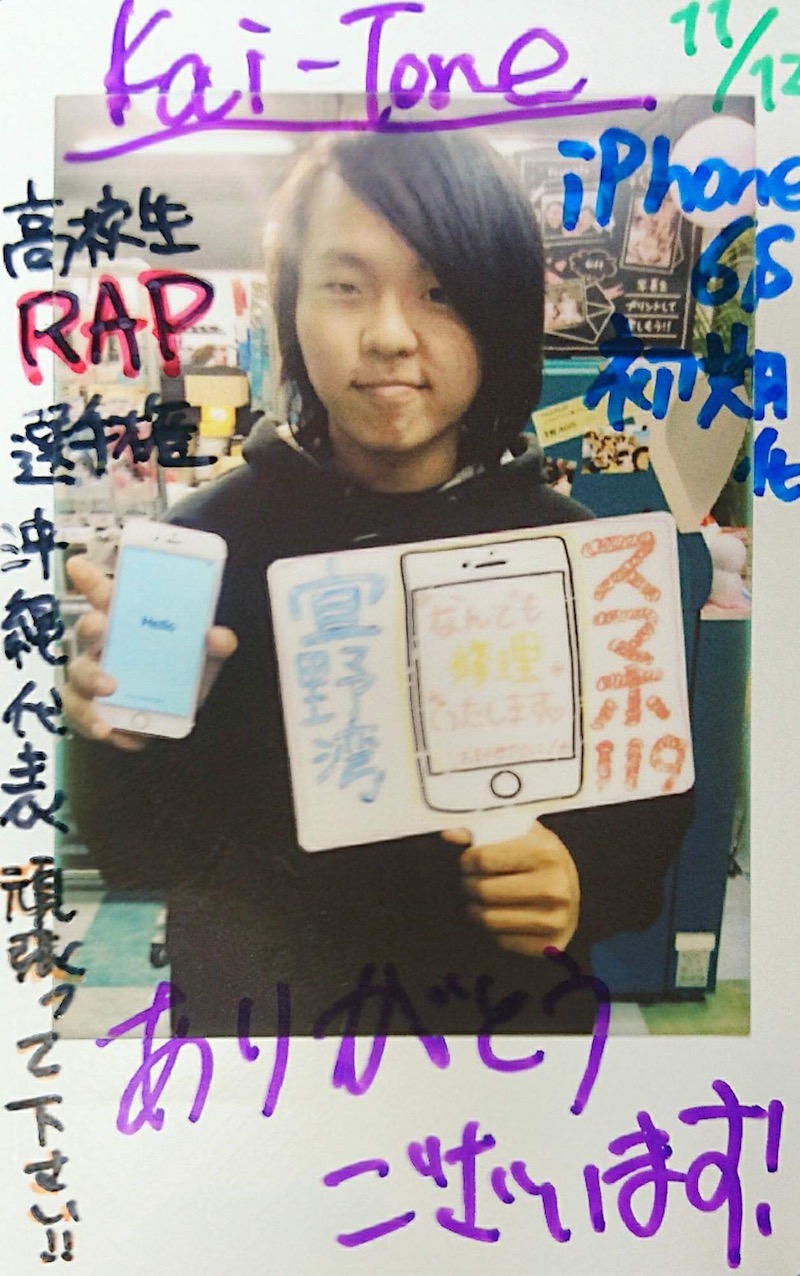 Kai-Tone
11/12
iPhone
6S
初期
化
高校生
RAP
選手権
沖縄代表頑張って下さい!!
写真を
プリントして
Hello
宜野湾
なんでも
修理
いたします
スマホ119
ありがとう
ございます!